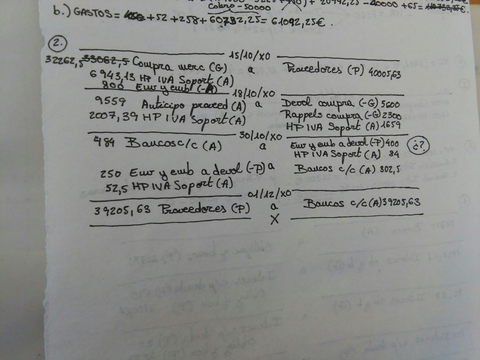 b.) GASTOS = +52 + 258 + 60732,25 = 61092,25€.
2.
15/10/X0
32262,5 33062,5 Compra merc (G) a Proveedores (P) 40005,63
6943,13 HP IVA Soport (A)
800 Env y emb (-P)
18/10/X0
9559 Anticipo proveed (A) a Devol compra (-G) 5600
2007,39 HP IVA Soport (A) Rappels compra (-G) 2300
HP IVA Soport (A) 1659
30/10/X0
484 Bancos c/c (A) Env y emb a devol (-P) 400 ¿?
HP IVA Soport (A) 84
250 Env y emb a devol (-P) a Bancos c/c (A) 302,5
52,5 HP IVA Soport (A)
01/12/X0
39205,63 Proveedores (P) a Bancos c/c (A) 39205,63
X